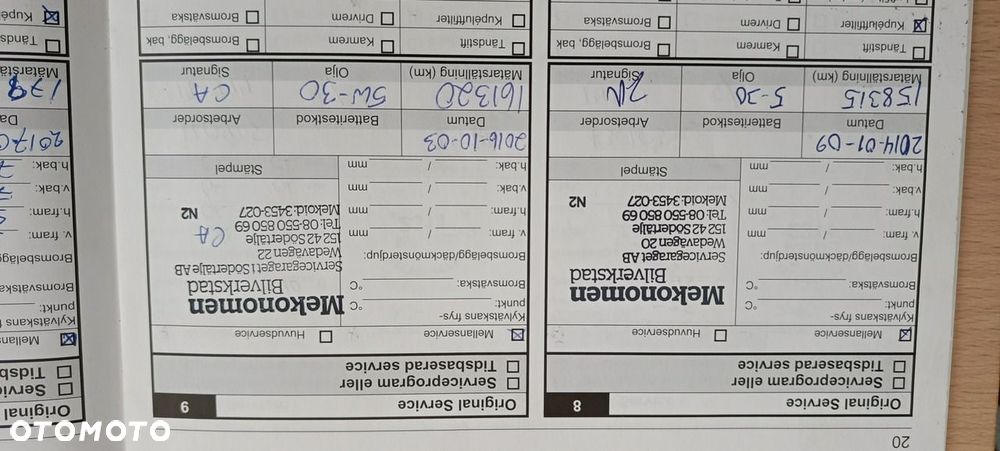 20
Original Service 8
Serviceprogram eller
Tidsbaserad service
Mellanservice Huvudservice
Kylvätskans frys-
punkt: °C
Bromsvätska: °C
Bromsbelägg/däckmönsterdjup:
v. fram: / mm
h.fram: / mm
v.bak: / mm
h.bak: / mm
Mekonomen
Bilverkstad
Servicegaraget AB
Wedavägen 20
152 42 Södertälje
Tel: 08-550 850 69
Mekoid: 3453-027 N2
Stämpel
2014-01-09
Datum Batteritestkod Arbetsorder
158315 5-30
Mätarställning (km) Olja Signatur
Tändstift Kamrem Bromsbelägg, bak
Kupéluftfilter Drivrem Bromsvätska
Original Service 9
Serviceprogram eller
Tidsbaserad service
Mellanservice Huvudservice
Kylvätskans frys-
punkt: °C
Bromsvätska: °C
Bromsbelägg/däckmönsterdjup:
v. fram: / mm
h.fram: / mm
v.bak: / mm
h.bak: / mm
Mekonomen
Bilverkstad
Servicegaraget i Södertälje AB
Wedavägen 22
152 42 Södertälje
Tel: 08-550 850 69
Mekoid: 3453-027 N2
CA
Stämpel
2016-10-03
Datum Batteritestkod Arbetsorder
161320 5W-30 CA
Mätarställning (km) Olja Signatur
Tändstift Kamrem Bromsbelägg, bak
Kupéluftfilter Drivrem Bromsvätska
Original
Service
Tidsb
Mellans
Kylvätskans frys
punkt:
Bromsvätska
Bromsbelägg
v. fram:
h.fram:
v.bak:
h.bak:
2017
Da
178
Mätarstä
Tändst
Kupé
OTOMOTO